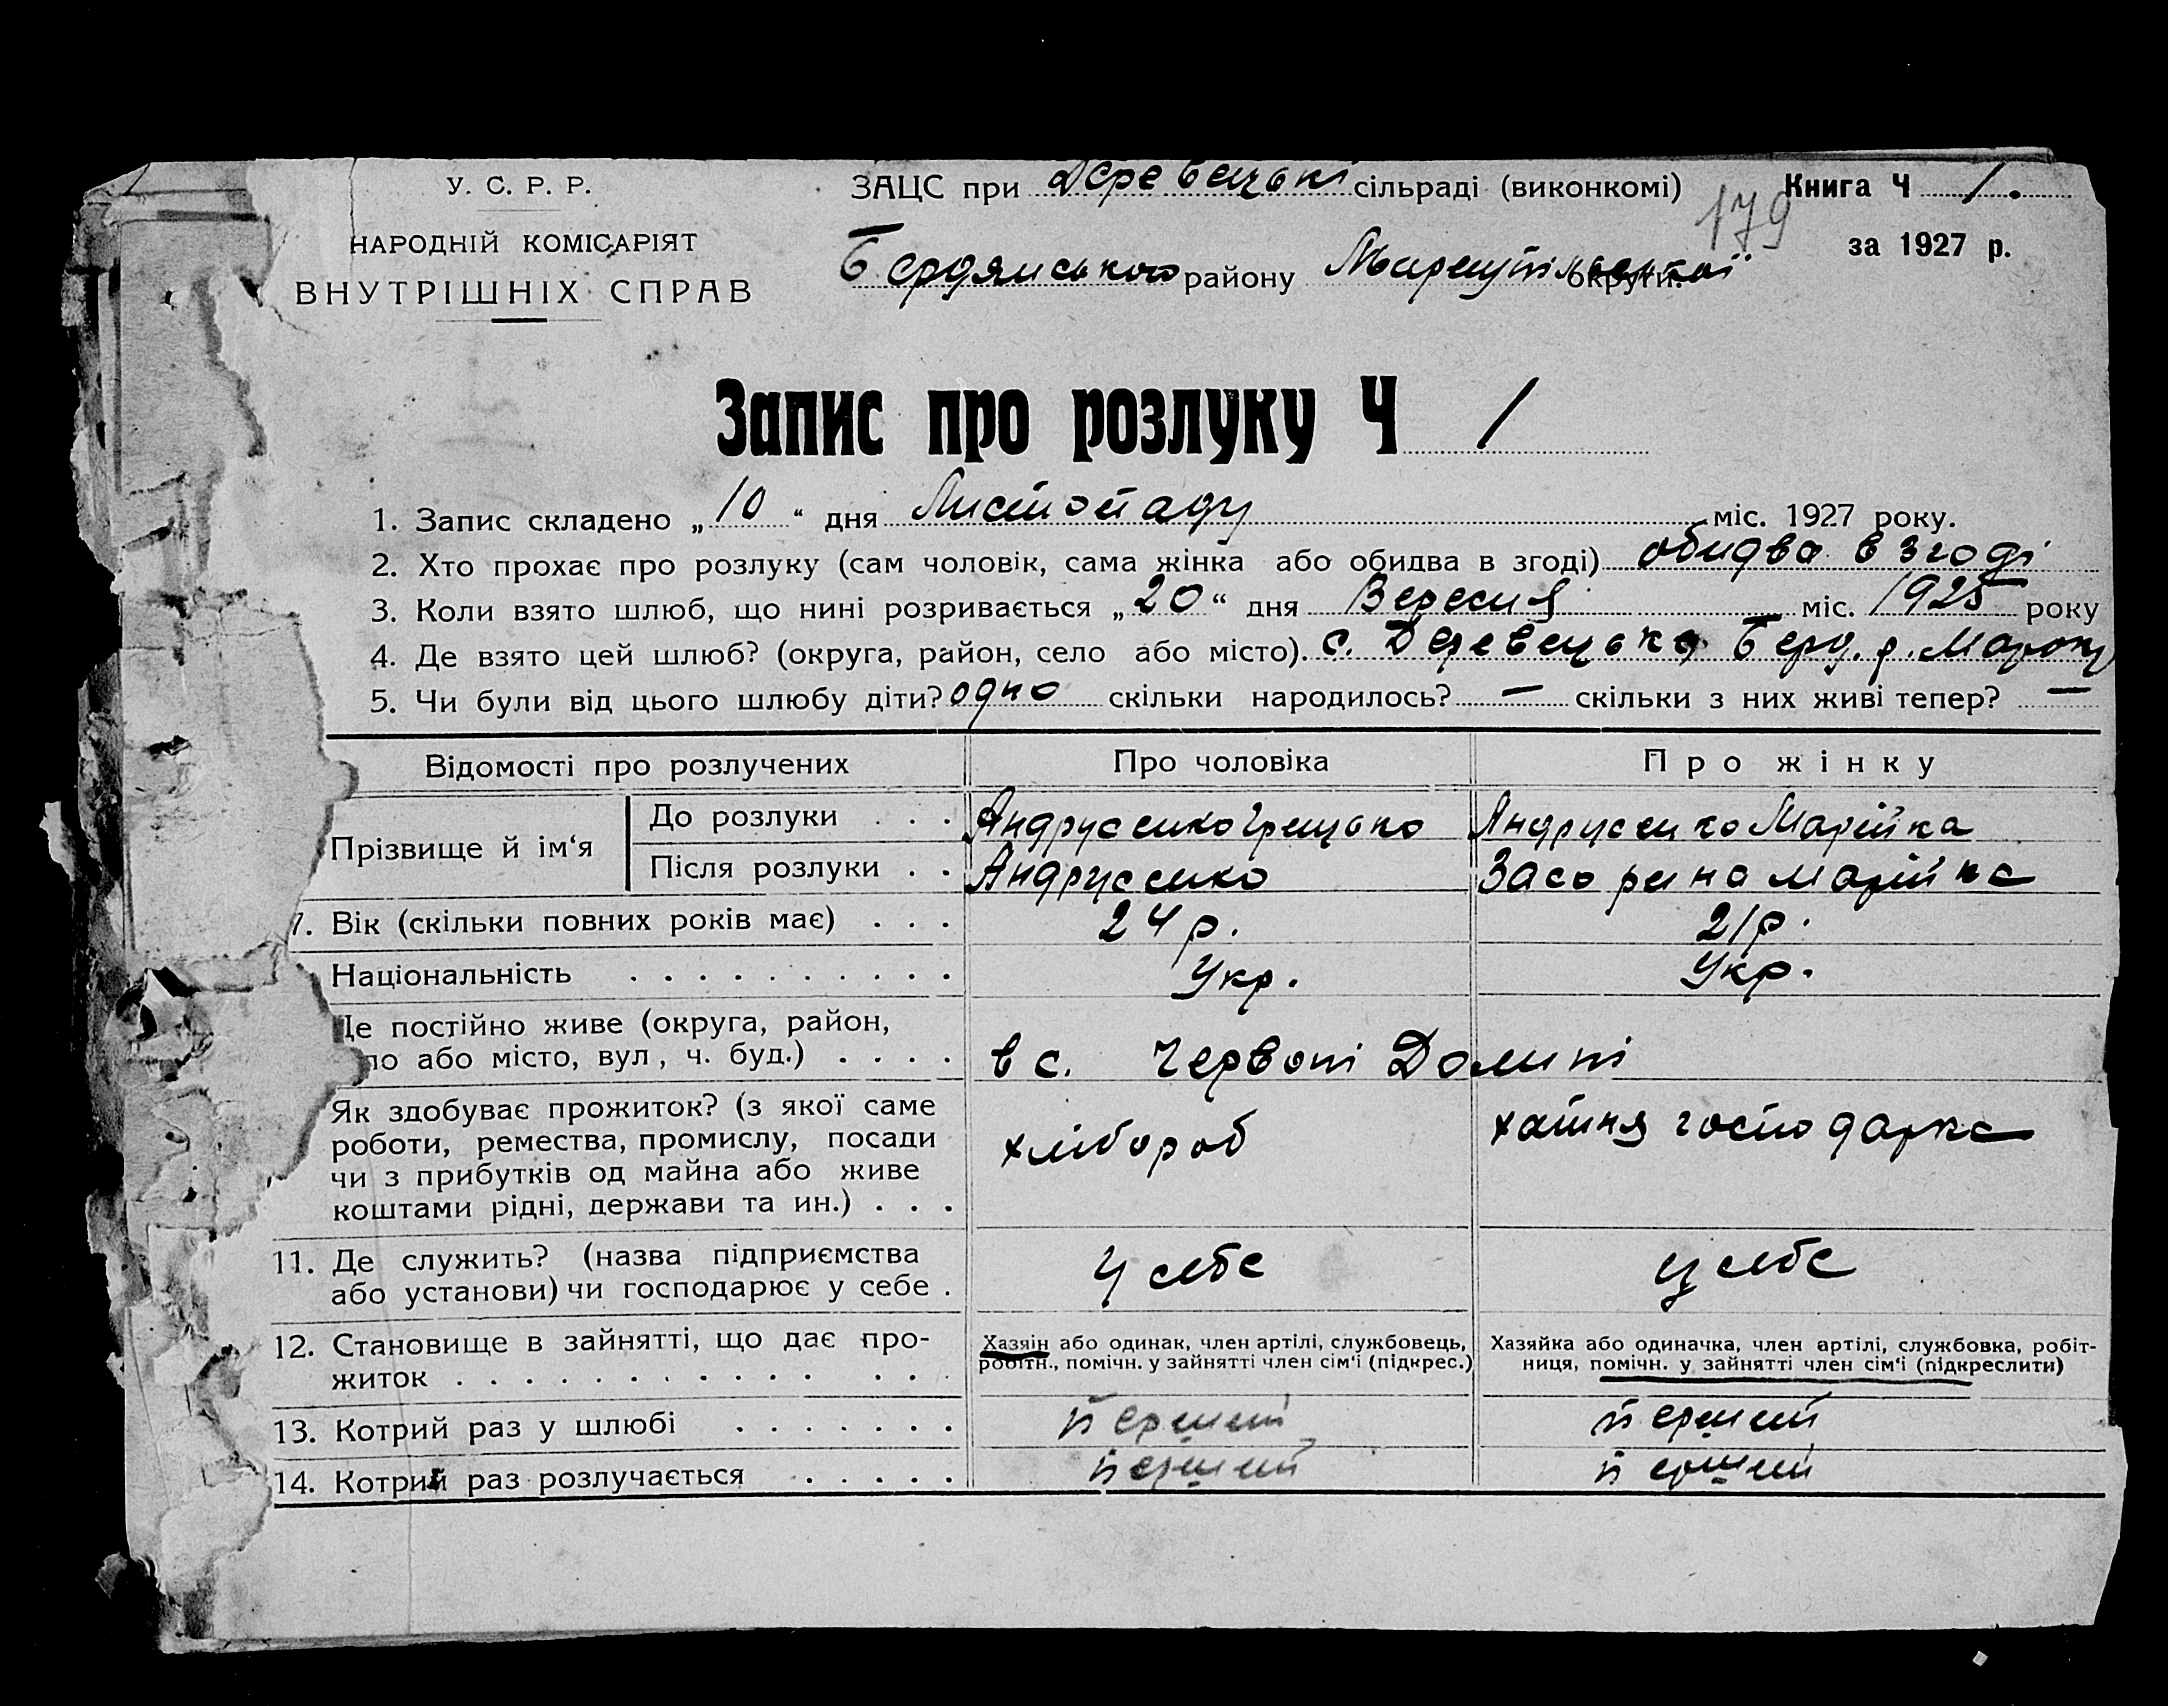 У. С. Р. Р.
НАРОДНІЙ КОМІСАРІЯТ
ВНУТРІШНІХ СПРАВ
ЗАЦС при Деревецькі сільраді (виконкомі)
Бердянського району Мариупільської округи.
Книга Ч 1.
179
за 1927 р.
Запис про розлуку Ч 1
1. Запис складено „10“ дня Листопаду міс. 1927 року.
2. Хто прохає про розлуку (сам чоловік, сама жінка або обидва в згоді) обидва в згоді
3. Коли взято шлюб, що нині розривається „20“ дня Вересня міс. 1925 року
4. Де взято цей шлюб? (округа, район, село або місто). с. Деревецька Берд. р. Мар окр
5. Чи були від цього шлюбу діти? одно скільки народилось? — скільки з них живі тепер? —
Відомості про розлучених Про чоловіка Про жінку
Прізвище й ім‘я
До розлуки . . . Андрусенко Грицько Андрусенко Марійка
Після розлуки . . Андрусенко Засорина Марійка
7. Вік (скільки повних років має) . . . 24 р. 21 р.
Національність . . . . . . . . . . Укр. Укр.
Де постійно живе (округа, район,
ло або місто, вул, ч. буд.) . . . . в с. Червоні Долині
Як здобуває прожиток? (з якої саме
роботи, ремества, промислу, посади
чи з прибутків од майна або живе
коштами рідні, держави та ин.) . . . хлібороб хатня господарка
11. Де служить? (назва підприємства
або установи) чи господарює у себе . у себе у себе
12. Становище в зайнятті, що дає про-
житок . . . . . . . . . . . . .
Хазяїн або одинак, член артілі, службовець,
робітн., помічн. у зайнятті член сім‘ї (підкрес.)
Хазяйка або одиначка, член артілі, службовка, робіт-
ниця, помічн. у зайнятті член сім‘ї (підкреслити)
13. Котрий раз у шлюбі . . . . . . . перший перший
14. Котрий раз розлучається . . . . . перший перший